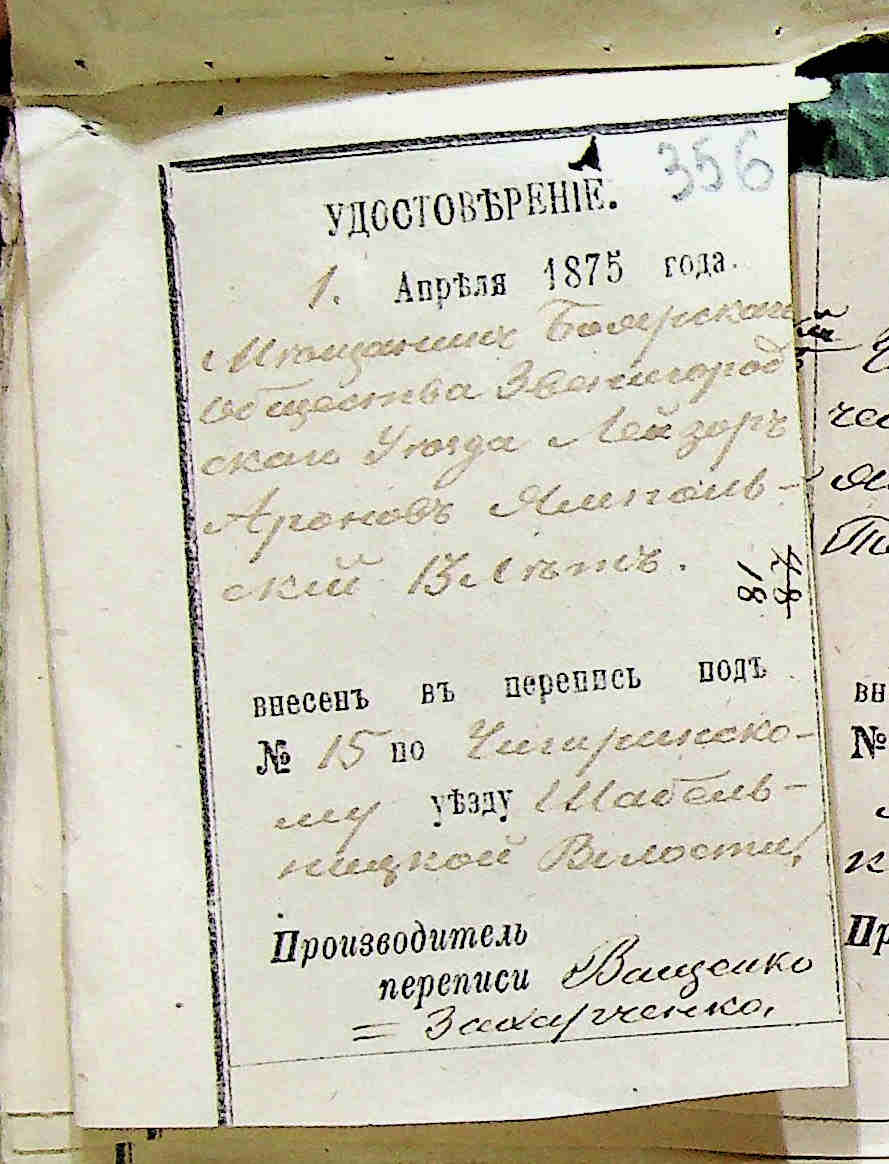 356
УДОСТОВѢРЕНІЕ.
1. Апрѣля 1875 года.
Мѣщанинъ Боярскаго
общества Звенигород
скаго Уѣзда Лейзоръ
Ароновъ Ямполь-
скій 13 лѣтъ.
48
18
внесенъ въ перепись подъ
№ 15 по Чигиринско-
му уѣзду Шабель-
ницкой Волости,
Производитель
переписи Ващенко
= Захарченко.
вн
№
Пр